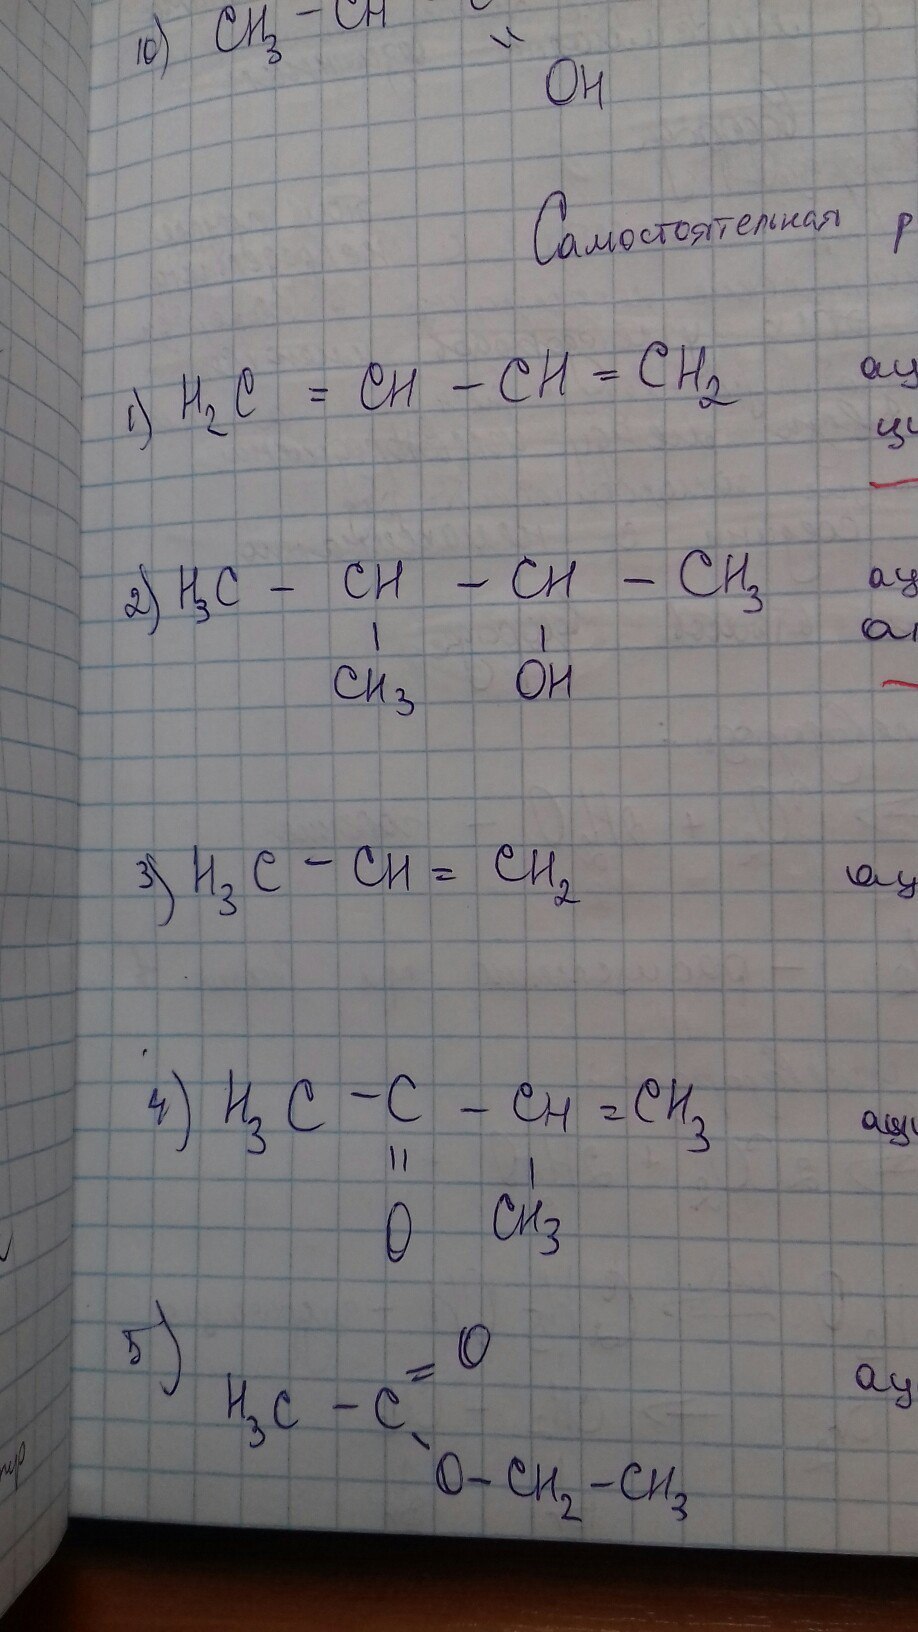 10) CH₃ - CH -
"
OH
Самостоятельная р
1) H₂C = CH - CH = CH₂ ац
ци
2) H₃C - CH - CH - CH₃ ац
ал
CH₃ OH
3) H₃C - CH = CH₂ ац
4) H₃C - C - CH = CH₃ аци
O CH₃
5) O
H₃C - C ац
O - CH₂ - CH₃